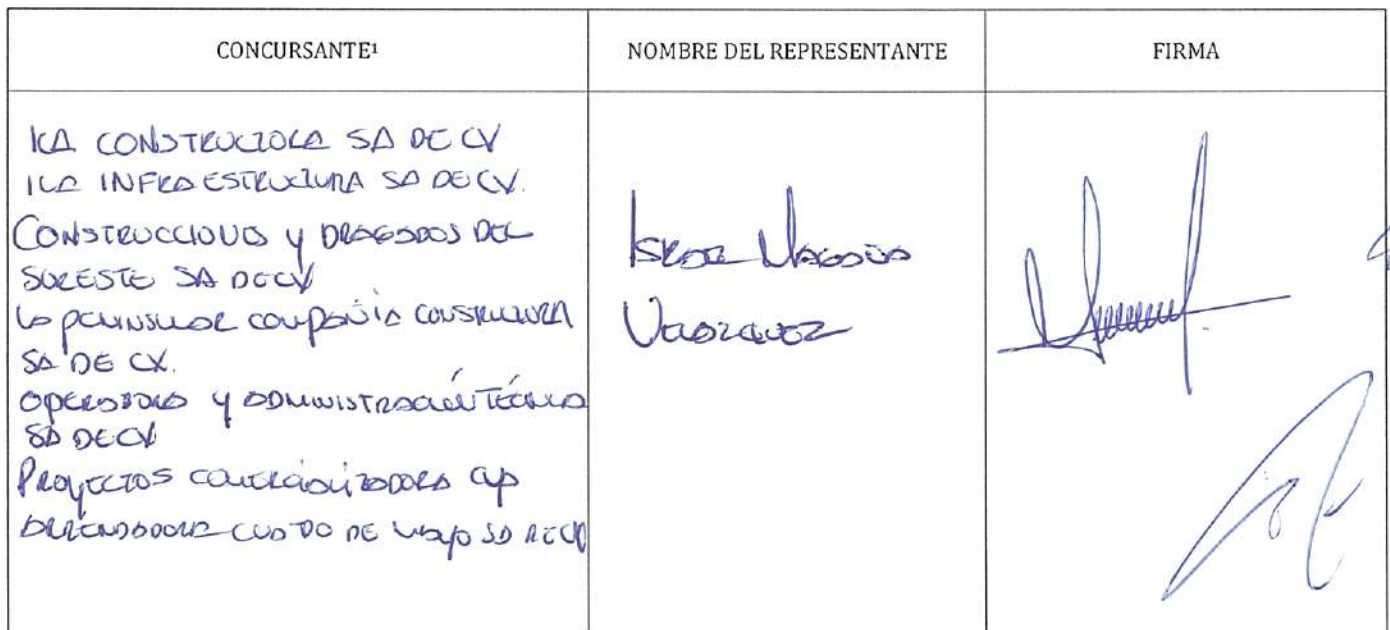 CONCURSANTE¹
NOMBRE DEL REPRESENTANTE
FIRMA
ICA CONSTRUCTORA SA DE CV
ICA INFRAESTRUCTURA SA DE CV.
CONSTRUCCIONES y DRAGADOS DEL
SURESTE SA DE CV
La PENINSULAR COMPAÑÍA CONSTRUCTORA
SA DE CV.
OPERADORA y ADMINISTRACIÓN TÉCNICA
SA DE CV
PROYECTOS
ARRENDADORA DE MAYO SA DE CV
VELAZQUEZ